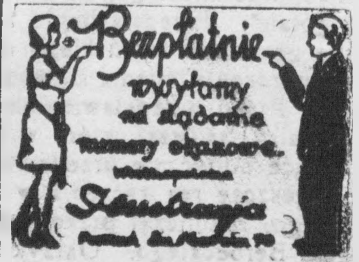 Bezpłatnie
wysyłamy
na żądanie
numery okazowe.
Wielkopolska
Ilustracja
Poznań, Św. Marcin 70